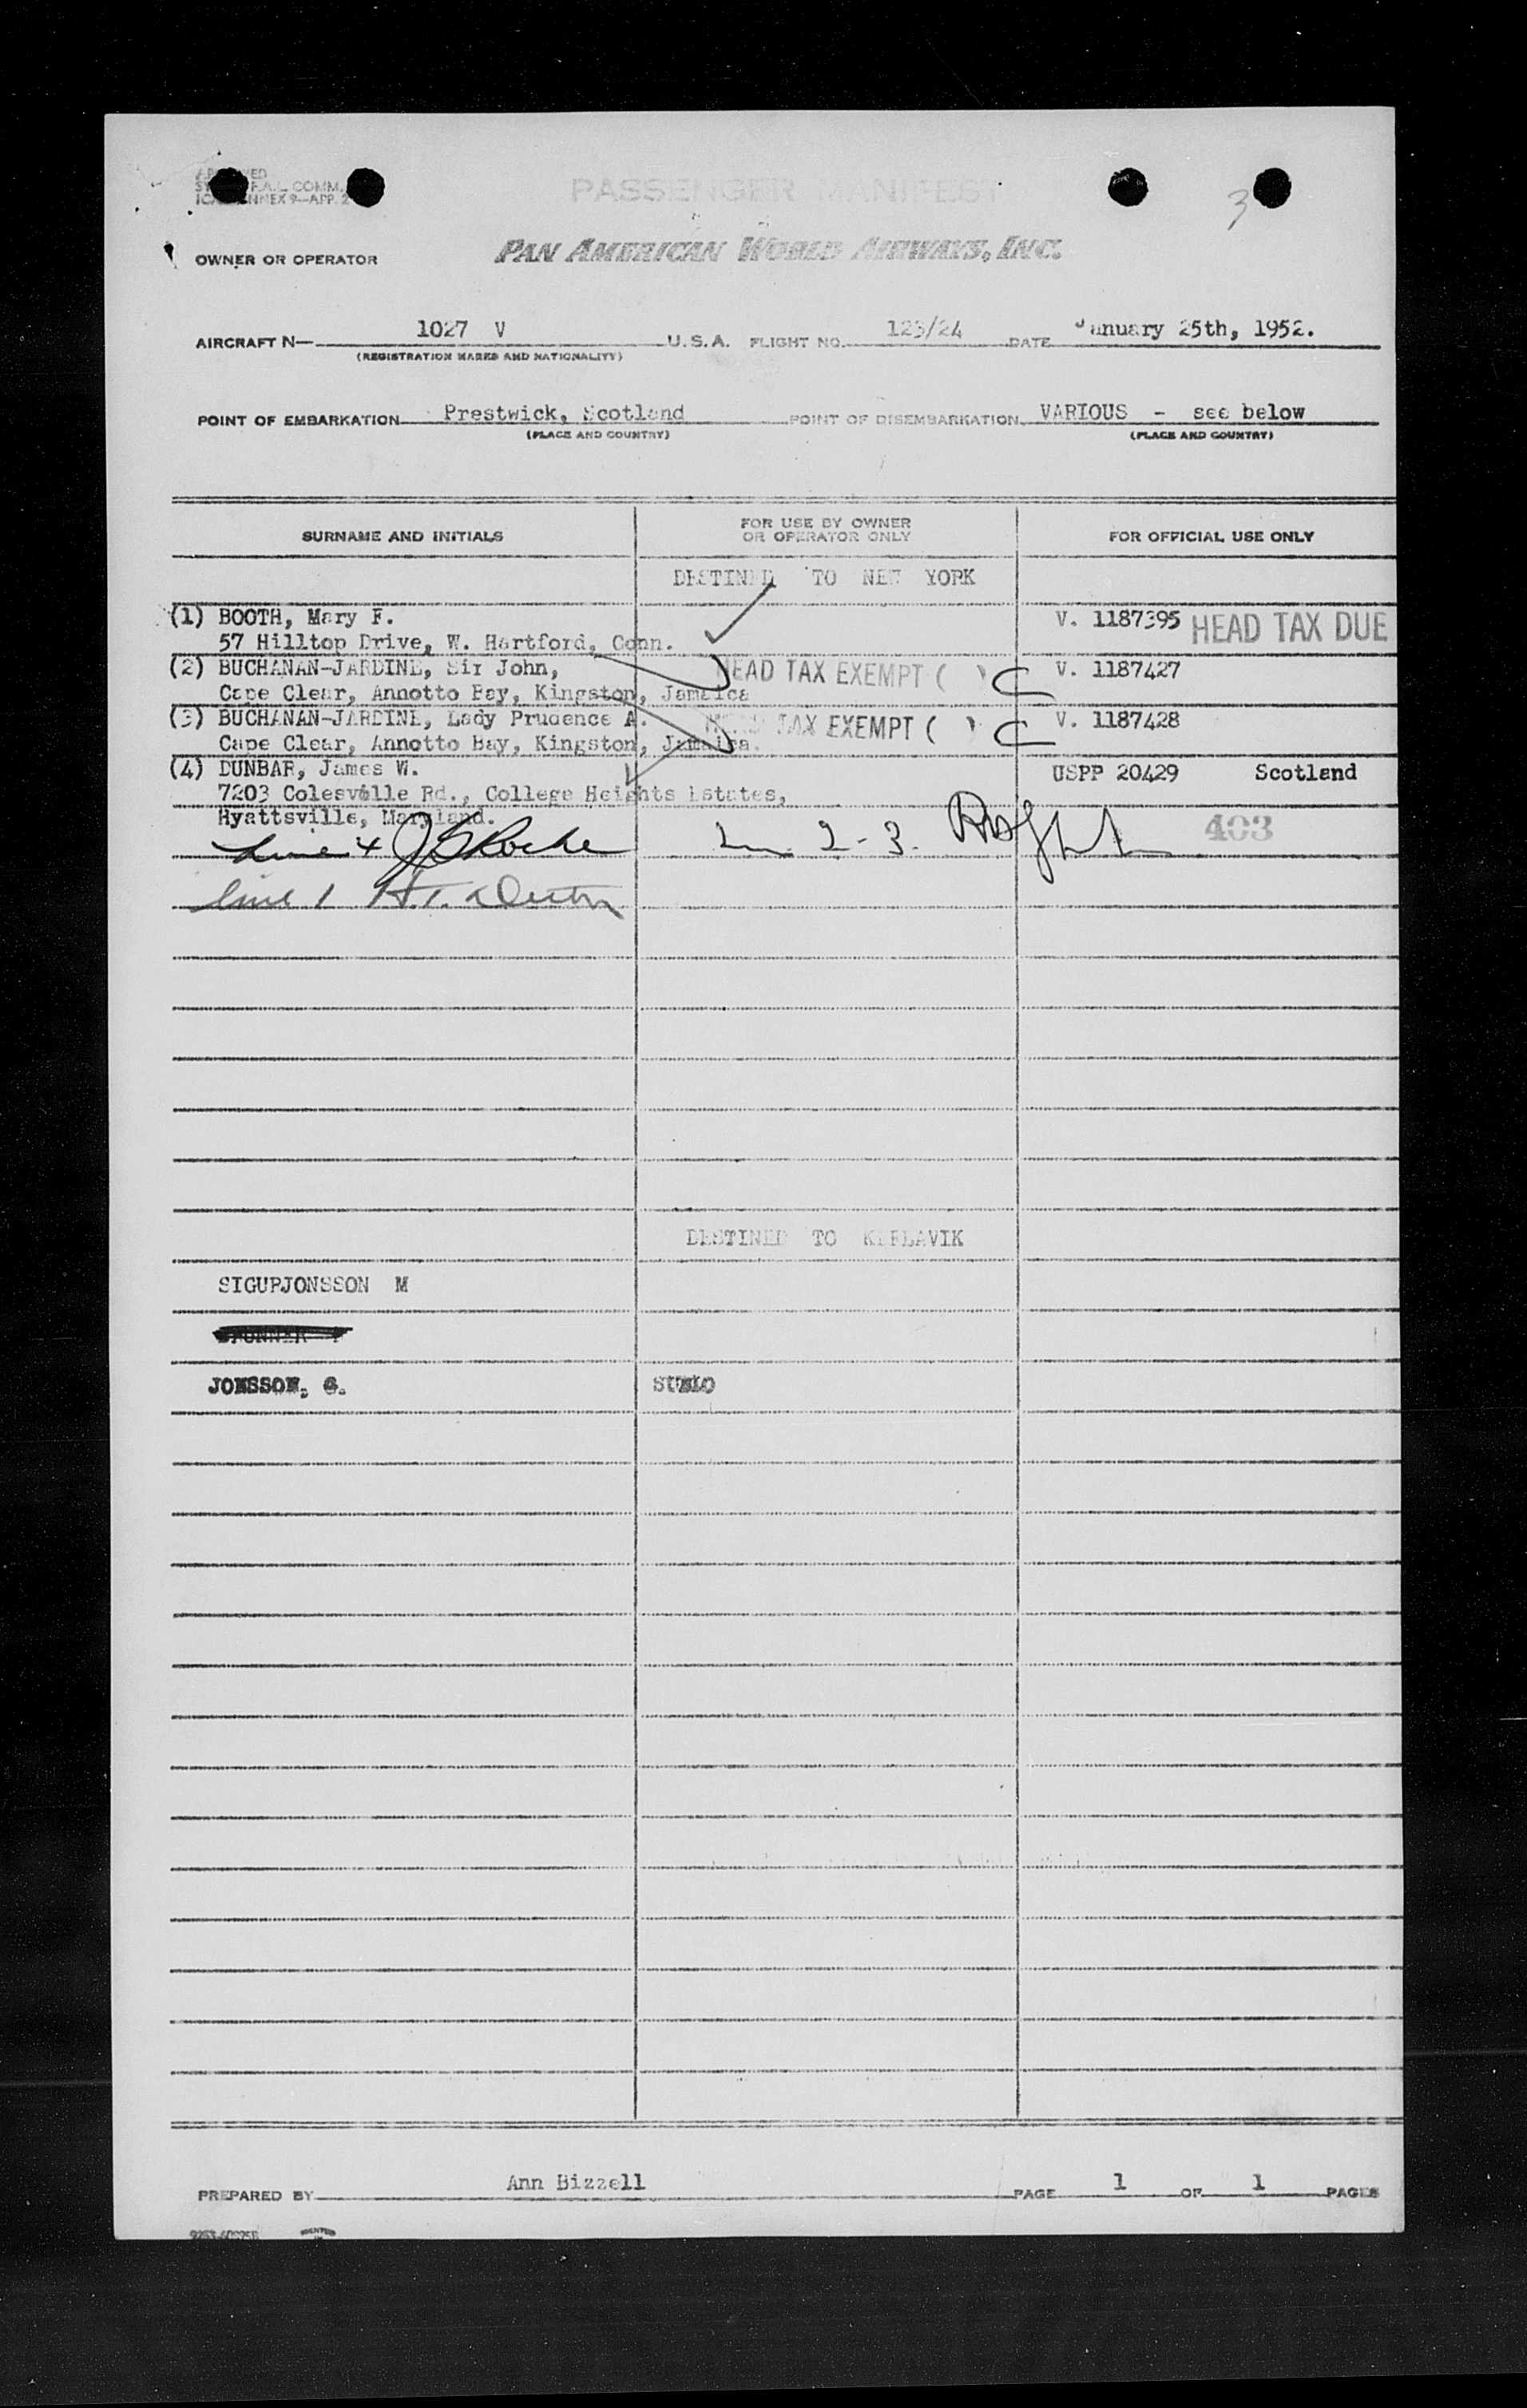 PASSENGER MANIFEST
F.A.L. COMM.
ANNEX 9-APP. 2
3
OWNER OR OPERATOR PAN AMERICAN WORLD AIRWAYS, INC.
AIRCRAFT N— 1027 V U.S.A. FLIGHT NO. 123/24 DATE January 25th, 1952.
(REGISTRATION MARKS AND NATIONALITY)
POINT OF EMBARKATION Prestwick, Scotland POINT OF DISEMBARKATION VARIOUS - see below
(PLACE AND COUNTRY) (PLACE AND COUNTRY)
SURNAME AND INITIALS FOR USE BY OWNER OR OPERATOR ONLY FOR OFFICIAL USE ONLY
DESTINED TO NEW YORK
(1) BOOTH, Mary F. V. 1187395 HEAD TAX DUE
57 Hilltop Drive, W. Hartford, Conn.
(2) BUCHANAN-JARDINE, Sir John, HEAD TAX EXEMPT ( ) V. 1187427
Cape Clear, Annotto Bay, Kingston, Jamaica
(3) BUCHANAN-JARDINE, Lady Prudence A. HEAD TAX EXEMPT ( ) V. 1187428
Cape Clear, Annotto Bay, Kingston, Jamaica.
(4) DUNBAR, James W. USPP 20429 Scotland
7203 Colesville Rd., College Heights Estates,
Hyattsville, Maryland.
Line 4 2-3. 403
line 1
DESTINED TO KEFLAVIK
SIGURJONSSON M
JONSSON, G.
PREPARED BY Ann Bizzell PAGE 1 OF 1 PAGES